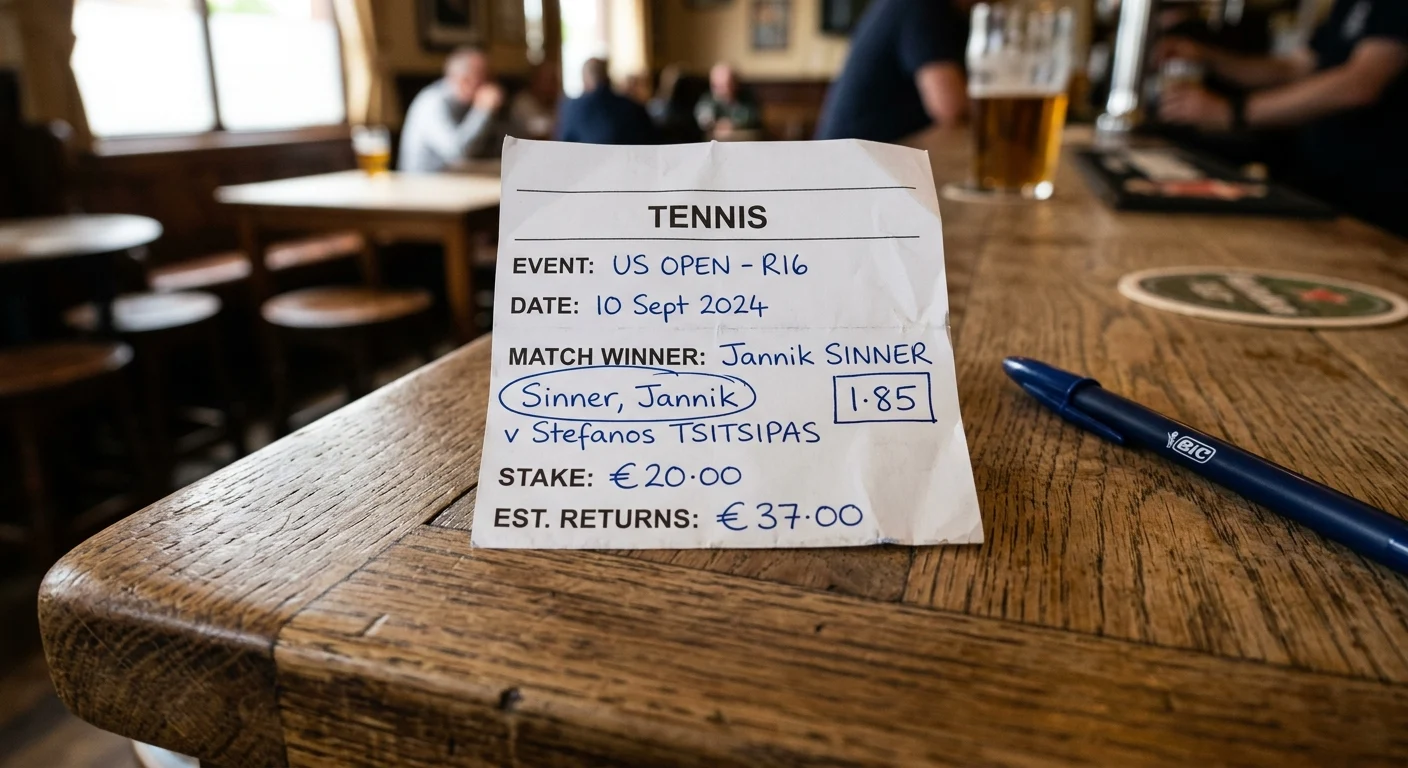 TENNIS
EVENT: US OPEN - R16
DATE: 10 Sept 2024
MATCH WINNER: Jannik SINNER
Sinner, Jannik 1·85
v Stefanos TSITSIPAS
STAKE: €20·00
EST. RETURNS: €37·00
BIC